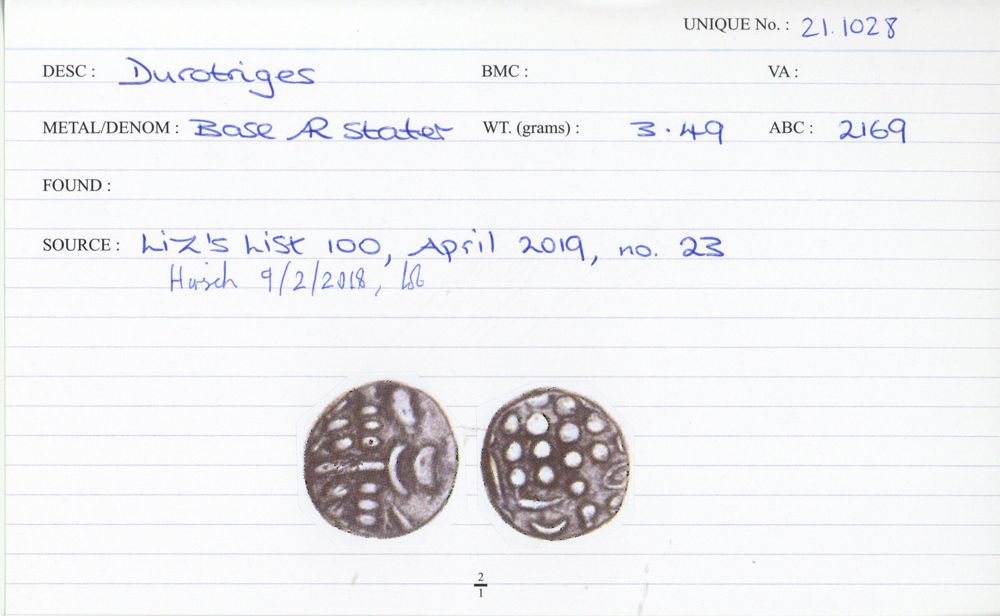 UNIQUE No. : 21.1028
DESC : Durotriges BMC : VA :
METAL/DENOM : Base AR Stater WT. (grams) : 3.49 ABC : 2169
FOUND :
SOURCE : Liz's List 100, April 2019, no. 23
Hirsch 9/2/2018,
2
1